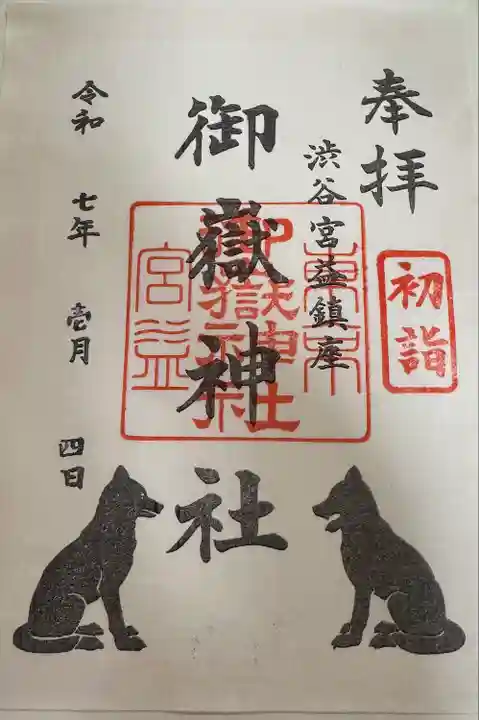 奉拝
初詣
渋谷宮益鎮座
御嶽神社
東京
御嶽神社
宮益
令和 七年 壱月 四日